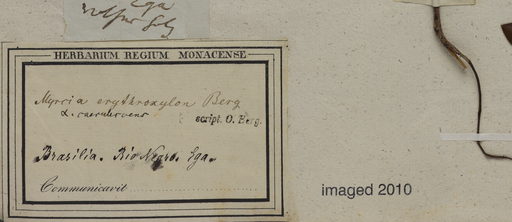 Ega
HERBARIUM REGIUM MONACENSE
Myrcia erythroxylon Berg
α. caerulescens
script. O. Berg.
Brasilia. Rio Negro. Ega.
Communicavit
imaged 2010